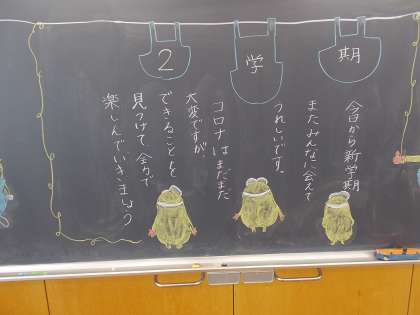 2学期
今日から新学期
またみんなに会えて
うれしいです。
コロナはまだまだ
大変ですが、
できることを
見つけて、全力で
楽しんでいきましょう